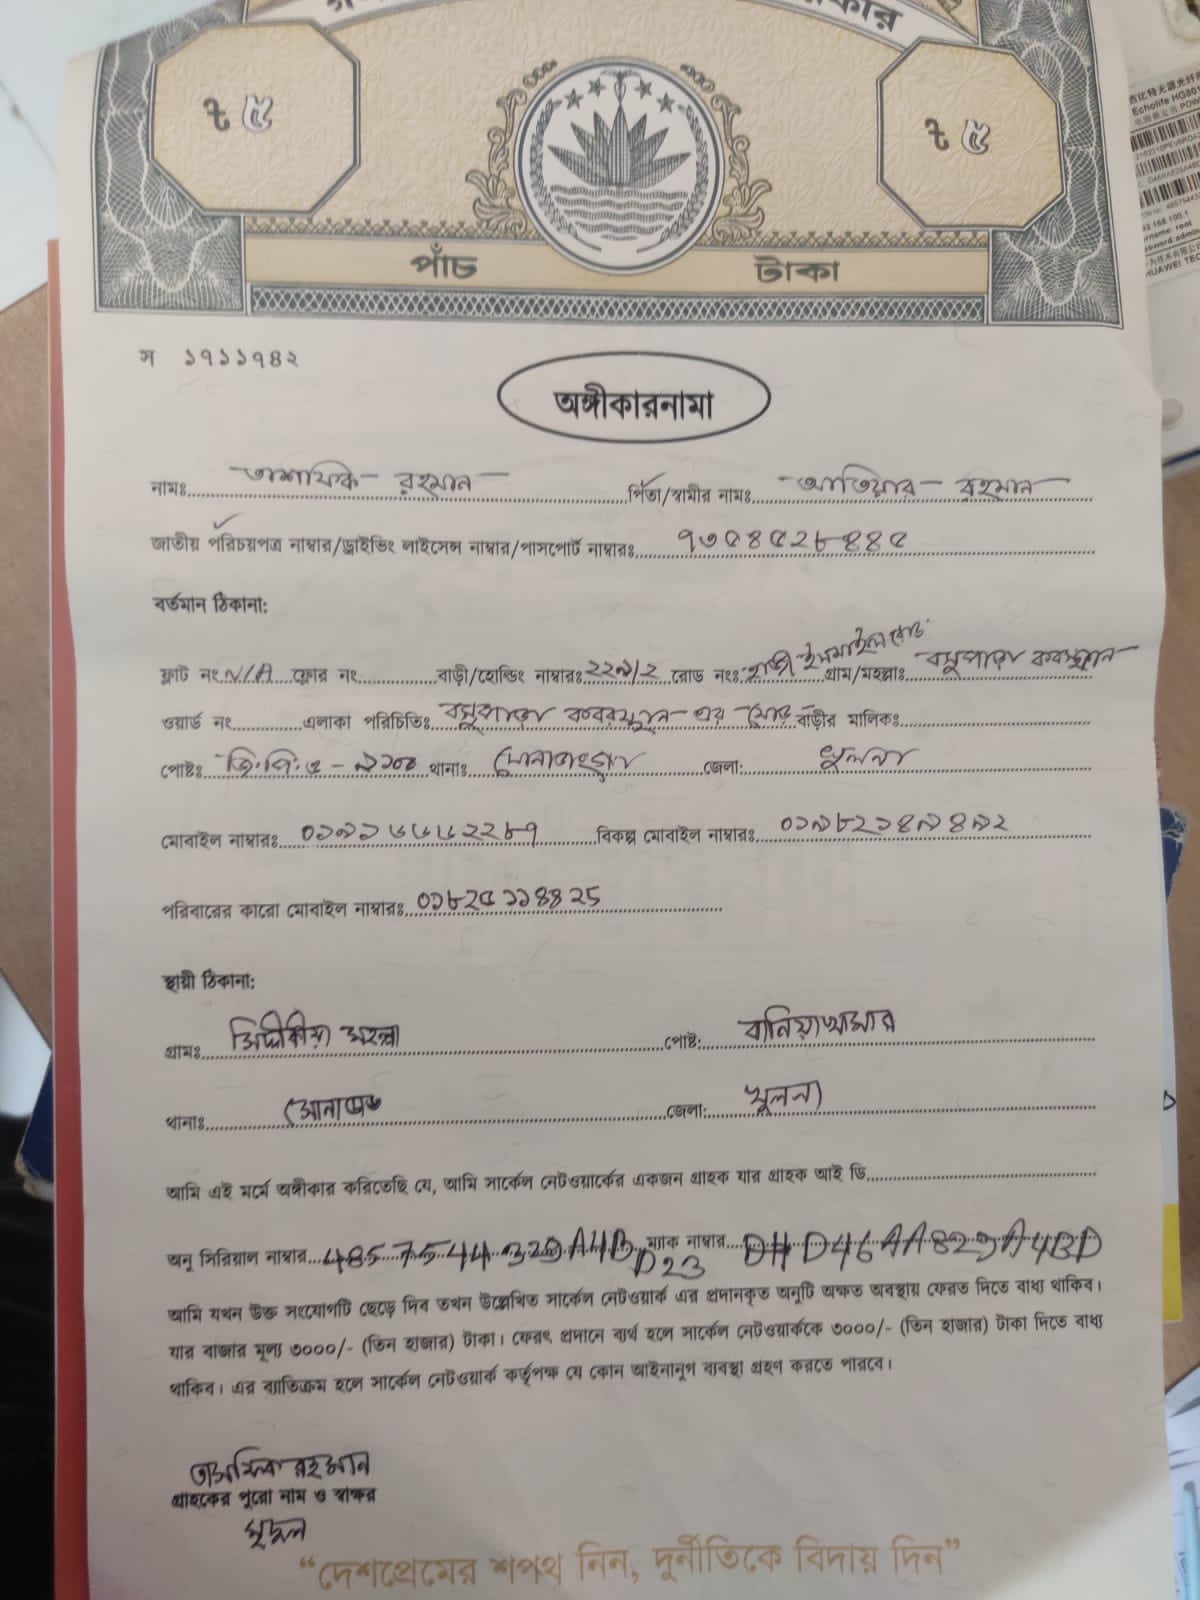 ৳ ৫
৳ ৫
পাঁচ টাকা
স ১৭১১৭৪২
অঙ্গীকারনামা
নামঃ তাশফিক রহমান পিতা/স্বামীর নামঃ আতিয়ার রহমান
জাতীয় পরিচয়পত্র নাম্বার/ড্রাইভিং লাইসেন্স নাম্বার/পাসপোর্ট নাম্বারঃ ৭৩৫৪৫২৮৪৪৫
বর্তমান ঠিকানা:
ফ্লাট নং N/A ফ্লোর নং বাড়ী/হোল্ডিং নাম্বারঃ ২২৯/২ রোড নংঃ হাজী ইসমাইল রোড গ্রাম/মহল্লাঃ বসুপাড়া কবরস্থান
ওয়ার্ড নং এলাকা পরিচিতিঃ বসুপাড়া কবরস্থান এর মোড় বাড়ীর মালিকঃ
পোষ্টঃ জি.পি.ও - ৯১০০ থানাঃ সোনাডাঙ্গা জেলা: খুলনা
মোবাইল নাম্বারঃ ০১৯১৬৬৬২২৮৭ বিকল্প মোবাইল নাম্বারঃ ০১৯৮২১৪৯৪৯২
পরিবারের কারো মোবাইল নাম্বারঃ ০১৮২৫১১৪৪২৬
স্থায়ী ঠিকানা:
গ্রামঃ সিদ্দীকীয়া মহল্লা পোষ্ট: বানিয়াখামার
থানাঃ জেলা: খুলনা
আমি এই মর্মে অঙ্গীকার করিতেছি যে, আমি সার্কেল নেটওয়ার্কের একজন গ্রাহক যার গ্রাহক আই ডি
অনু সিরিয়াল নাম্বার 48575443 29A4B D23 ম্যাক নাম্বার D46AA829A4BD
আমি যখন উক্ত সংযোগটি ছেড়ে দিব তখন উল্লেখিত সার্কেল নেটওয়ার্ক এর প্রদানকৃত অনুটি অক্ষত অবস্থায় ফেরত দিতে বাধ্য থাকিব।
যার বাজার মূল্য ৩০০০/- (তিন হাজার) টাকা। ফেরৎ প্রদানে ব্যর্থ হলে সার্কেল নেটওয়ার্ককে ৩০০০/- (তিন হাজার) টাকা দিতে বাধ্য
থাকিব। এর ব্যতিক্রম হলে সার্কেল নেটওয়ার্ক কর্তৃপক্ষ যে কোন আইনানুগ ব্যবস্থা গ্রহণ করতে পারবে।
তাসফিক রহমান
গ্রাহকের পুরো নাম ও স্বাক্ষর
মৃদুল
“দেশপ্রেমের শপথ নিন, দুর্নীতিকে বিদায় দিন”